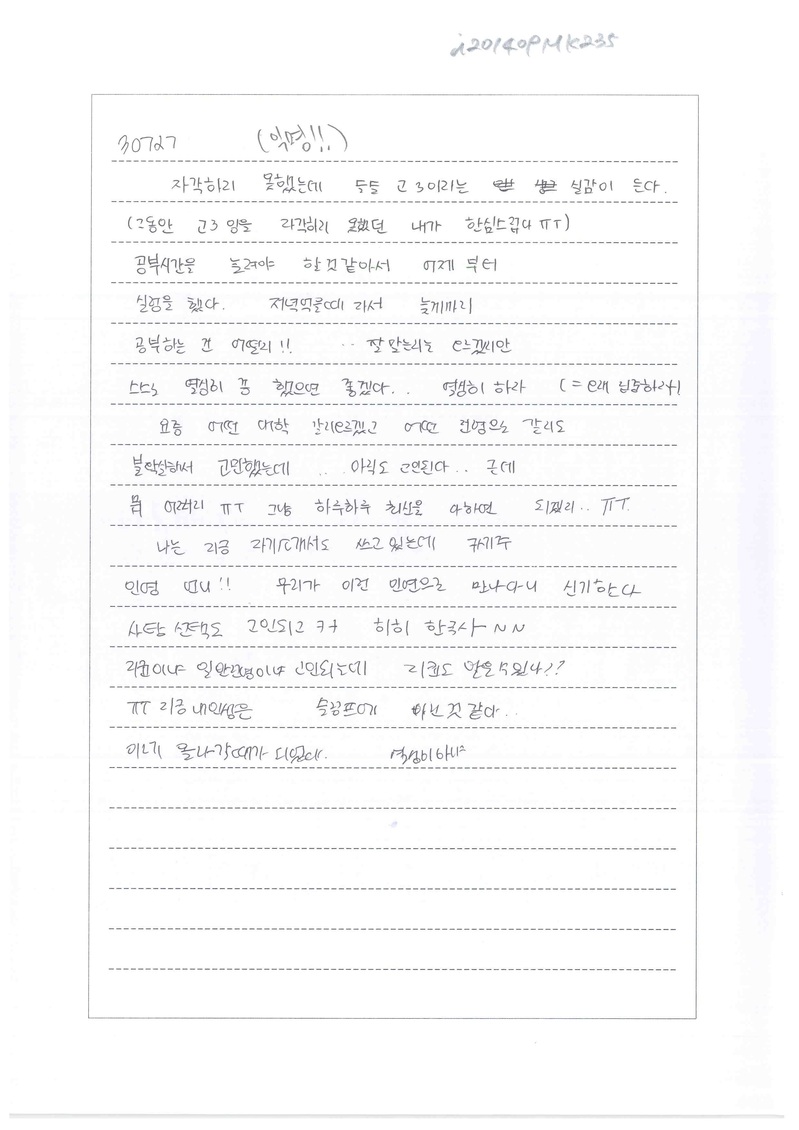 30727 (익명!!)
자각하지 못했는데 슬슬 고3이라는 실감이 든다.
(그동안 고3 임을 자각하지 못했던 내가 한심스럽다 ㅠㅠ)
공부시간을 늘려야 할 것 같아서 어제 부터
실행을 했다. 저녁먹을때 라서 늦게까지
공부하는 건 어떨지!! ·· 잘 맞는지는 모르겠지만
열심히 좀 했으면 좋겠다.. 열심히 하자
요즘 어떤 대학 갈지모르겠고 어떤 전형으로 갈지도
불확실해서 고민했는데 .. 아직도 고민된다.. 근데
뭐 어쩌지 ㅠㅠ 그냥 하루하루 최선을 다하면 되겠지.. ㅠㅠ.
나는 지금 자기소개서도 쓰고 있는데
언니!! 우리가 이런 인연으로 만나다니 신기하다
사탐 선택도 고민되고 ㅋㅋ 히히 한국사~~
일반전형이냐 고민되는데
ㅠㅠ 지금 내인생은 슬럼프에 빠진 것 같다..
이제 올라갈때가 되었다. 열심히하자